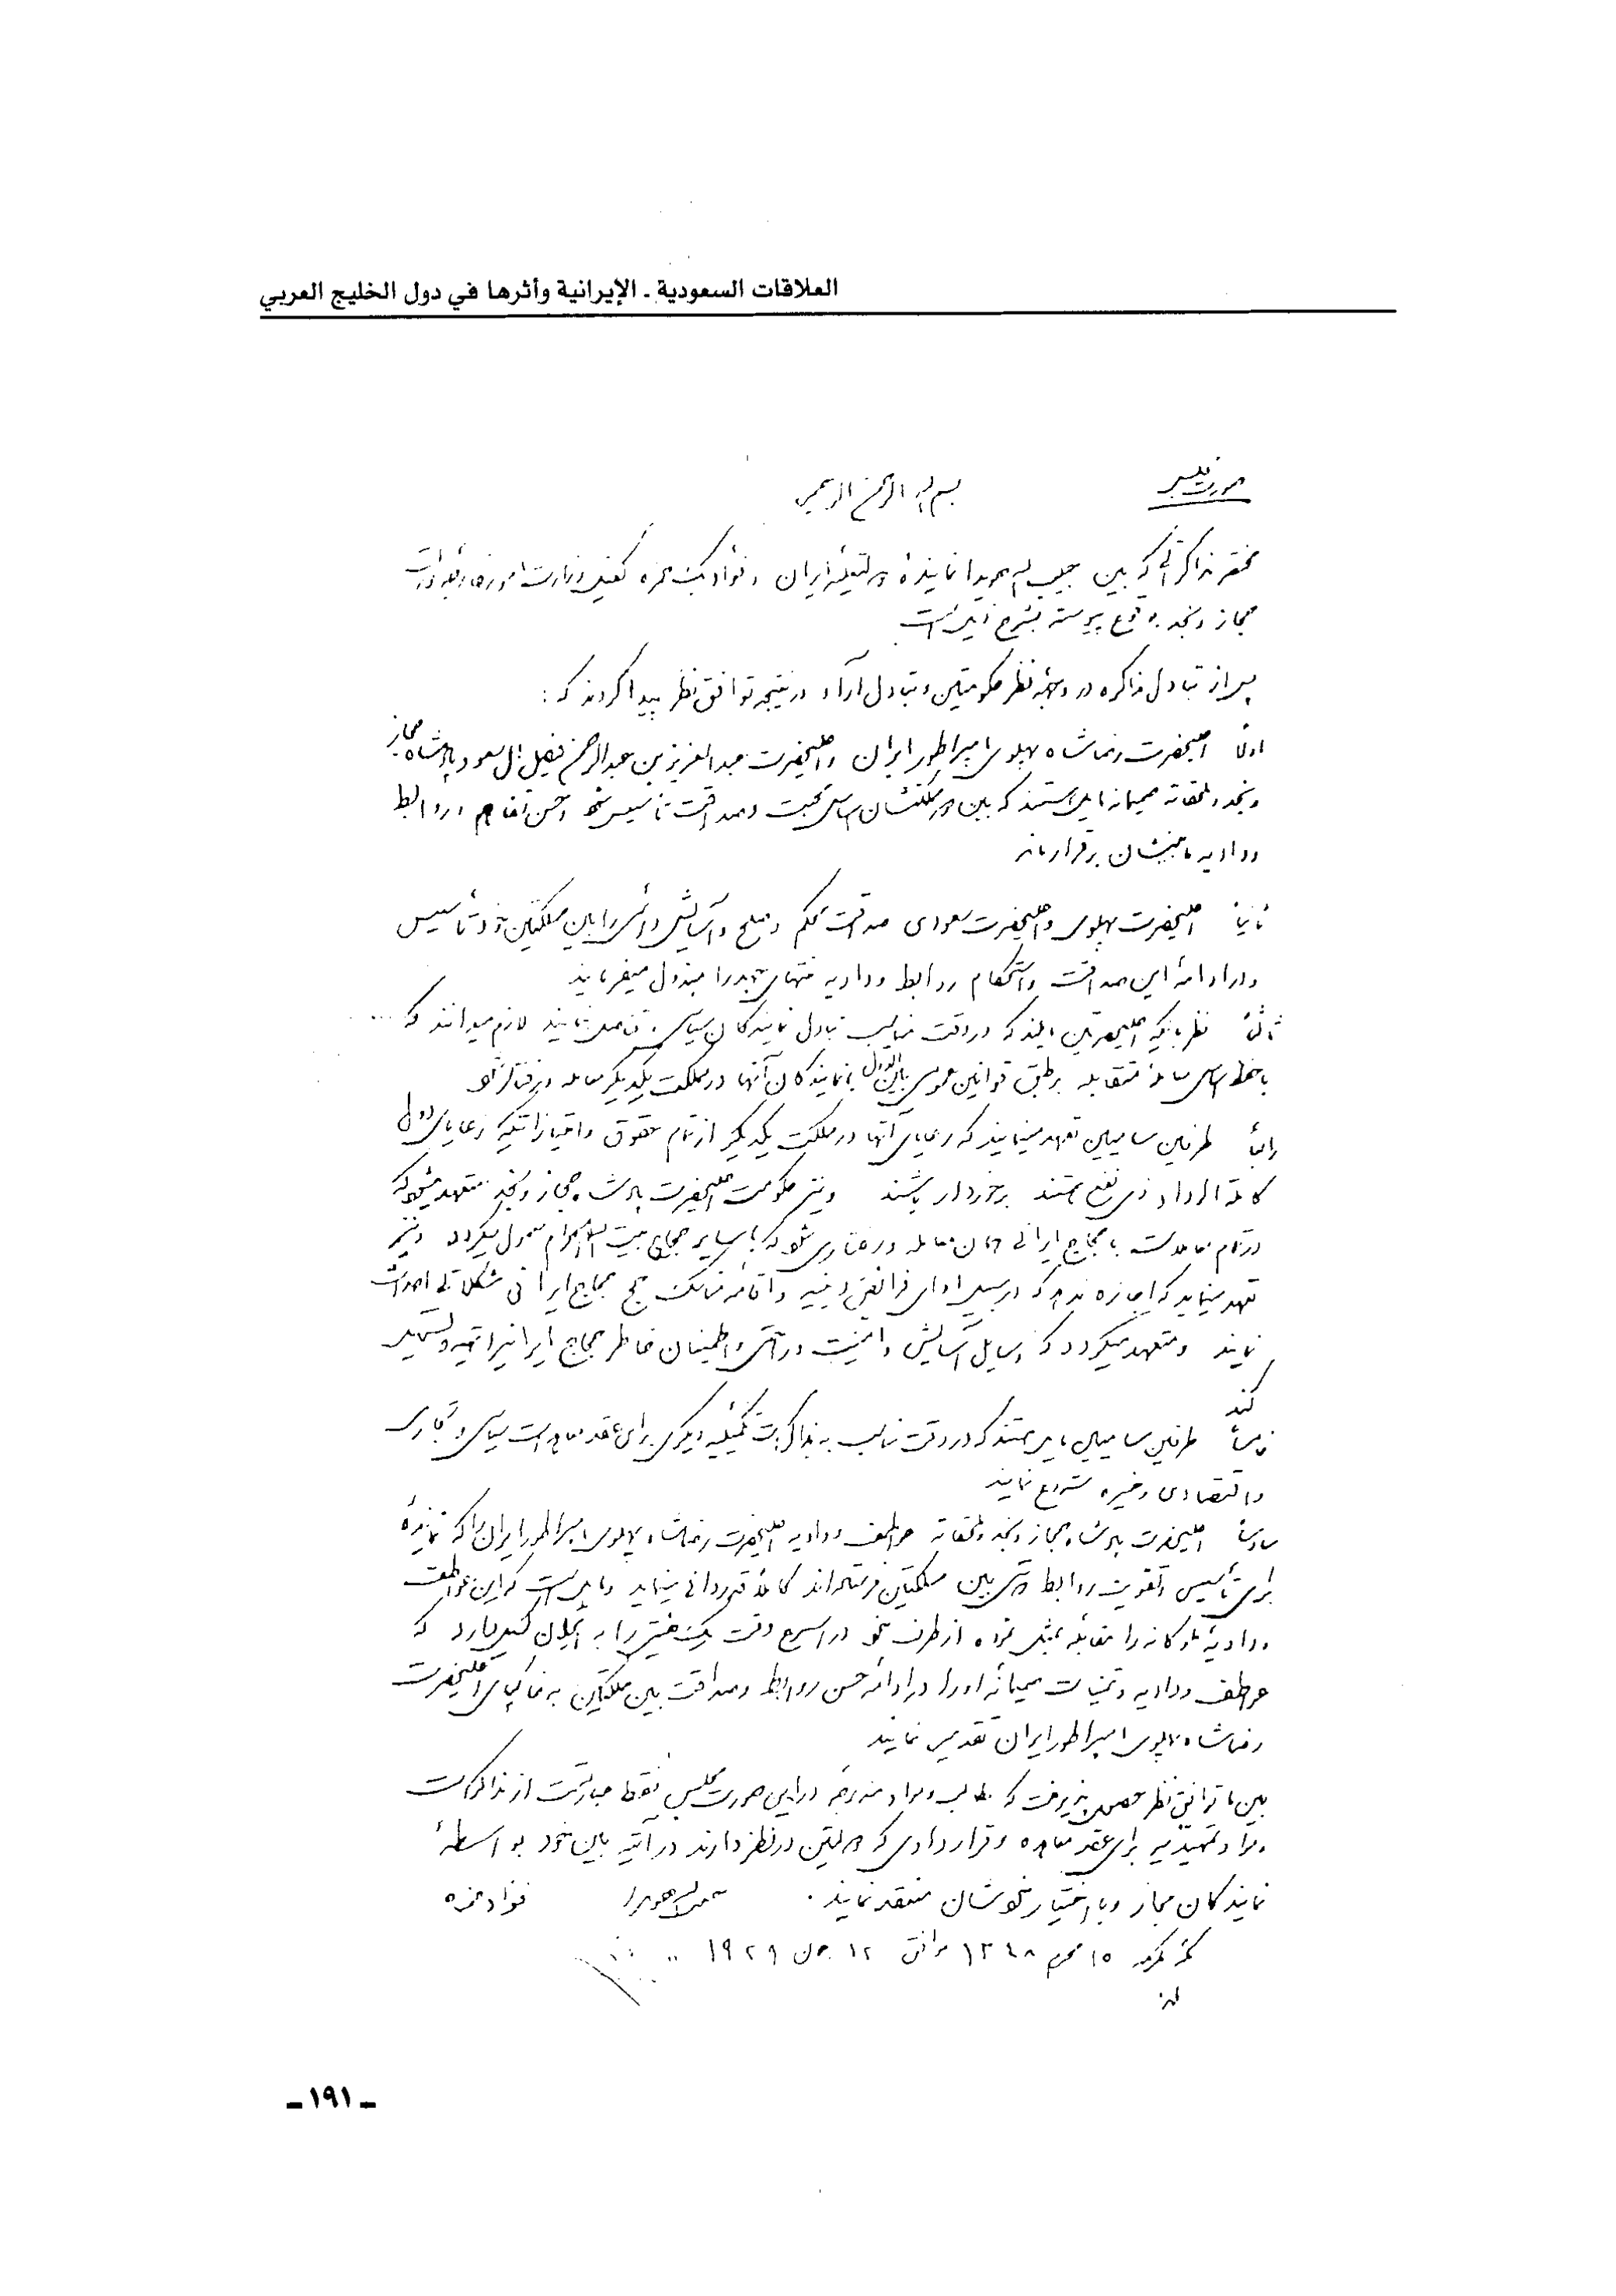 العلاقات السعودية ـ الإيرانية وأثرها في دول الخليج العربي
صورت مجلس
بسم الله الرحمن الرحيم
مختصر مذاکراتی که بین حبیب الله هویدا نمایندهٔ دولت علیهٔ ایران و فؤاد بک حمزه کفیل وزارت امور خارجه دولت
حجاز و نجد بوقوع پیوسته بشرح ذیل است
پس از تبادل مذاکره در وجههٔ نظر حکومتین و تبادل آراء در نتیجه توافق نظر پیدا کردند که :
اولاً اعلیحضرت رضا شاه پهلوی امپراطور ایران و اعلیحضرت عبدالعزیز بن عبدالرحمن فیصل آل سعود پادشاه حجاز
و نجد و ملحقاته صمیمانه مایل هستند که بین مملکتشان اساس محبت و صداقت تأسیس شود و حسن تفاهم و روابط
ودادیه مابینشان برقرار ماند
ثانیاً اعلیحضرت پهلوی و اعلیحضرت سعودی صداقت محکم و صلح و آسایش دائمی را بین مملکتین خود تأسیس
و در ادامهٔ این صداقت و استحکام روابط ودادیه منتهای جهد را مبذول میفرمایند
ثالثاً نظر باینکه اعلیحضرتین مایلند که در وقت مناسب تبادل نمایندگان سیاسی نمایند لازم میدانند که ...
با حفظ اساس معاملهٔ متقابله بر طبق قوانین عمومی بین الدول با نمایندگان آنها در مملکت یکدیگر معامله و رفتار شود
رابعاً طرفین سامیین تعهد مینمایند که رعایای آنها در مملکت یکدیگر از تمام حقوق و امتیازاتیکه رعایای دول
کاملة الوداد ذی نفع هستند برخوردار باشند و نیز حکومت اعلیحضرت پادشاه حجاز و نجد متعهد میشود که
در تمام معاملات با حجاج ایرانی همان معامله و رفتاری شود که با سایر حجاج بیت الله الحرام معمول میگردد و نیز
تعهد مینماید که اجازه ندهد که در سبیل ادای فرائض دینیه و اقامه مناسک حج حجاج ایرانی مشکلاتی احداث
نمایند و متعهد میگردد که وسایل آسایش و امنیت و راحتی و اطمینان خاطر حجاج ایرانیرا تهیه و تسهیل
کند
خامساً طرفین سامیین مایل هستند که در وقت مناسب به مذاکرات تکمیلیه دیگری برای عقد معاهدات سیاسی و تجاری
و اقتصادی و غیره شروع نمایند
سادساً اعلیحضرت پادشاه حجاز و نجد و ملحقاته عواطف ودادیه اعلیحضرت رضا شاه پهلوی امپراطور ایران را که نمایندهٔ
برای تأسیس و تقویت روابط دوستی بین مملکتین فرستاده‌اند کاملاً قدردانی مینماید و مایل است که این عواطف
ودادیهٔ ملوکانه را مقابله بمثل نموده از طرف خود در اسرع وقت یک هیئتی را به ایران گسیل دارد که
عواطف ودادیه و تمنیات صمیمانهٔ او را در ادامه حسن روابط و صداقت بین مملکتین به خاکپای اعلیحضرت
رضا شاه پهلوی امپراطور ایران تقدیم نمایند
بین ما توافق نظر حصول پذیرفت که مطالب و مواد مندرجه در این صورت مجلس فقط عبارتست از مذاکرات
و مواد تمهیدیه برای عقد معاهده و قراردادی که دولتین در نظر دارند در آتیه بین خود بواسطهٔ
نمایندگان مجاز و با اختیار خودشان منعقد نمایند . حبیب الله هویدا فؤاد حمزه
مکه مکرمه ١٥ محرم ١٣٤٨ موافق ١٢ جون ١٩٢٩
ـ ١٩١ ـ